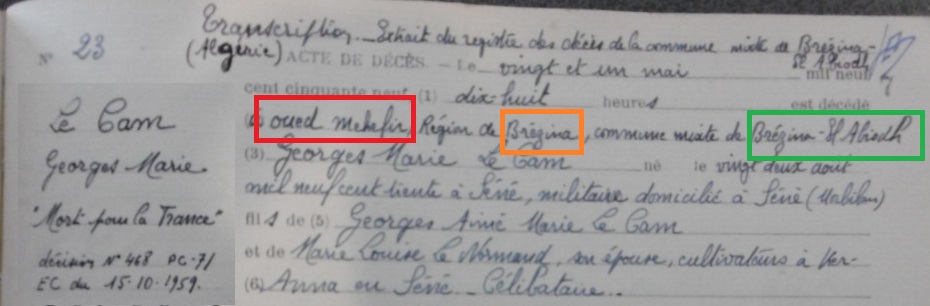 Transcription. - Extrait du registre des décès de la commune mixte de Brézina-
El Abiodh
N° 23
(Algérie) ACTE DE DÉCÈS. - Le vingt et un mai mil neuf
cent cinquante neuf (1) dix-huit heures est décédé
oued mehefir, Région de Brézina, commune mixte de Brézina-El Abiodh
(3) Georges Marie Le Cam né le vingt deux août
mil neuf cent trente à Séné, militaire domicilié à Séné (Morbihan)
fils de (5) Georges Aimé Marie Le Cam
et de Marie Louise Le Normand, son épouse, cultivateurs à Ker-
(6) Anna en Séné - Célibataire.
Le Cam
Georges Marie
"Mort pour la France"
décision N° 468 PC-7/
EC du 15.10.1959.